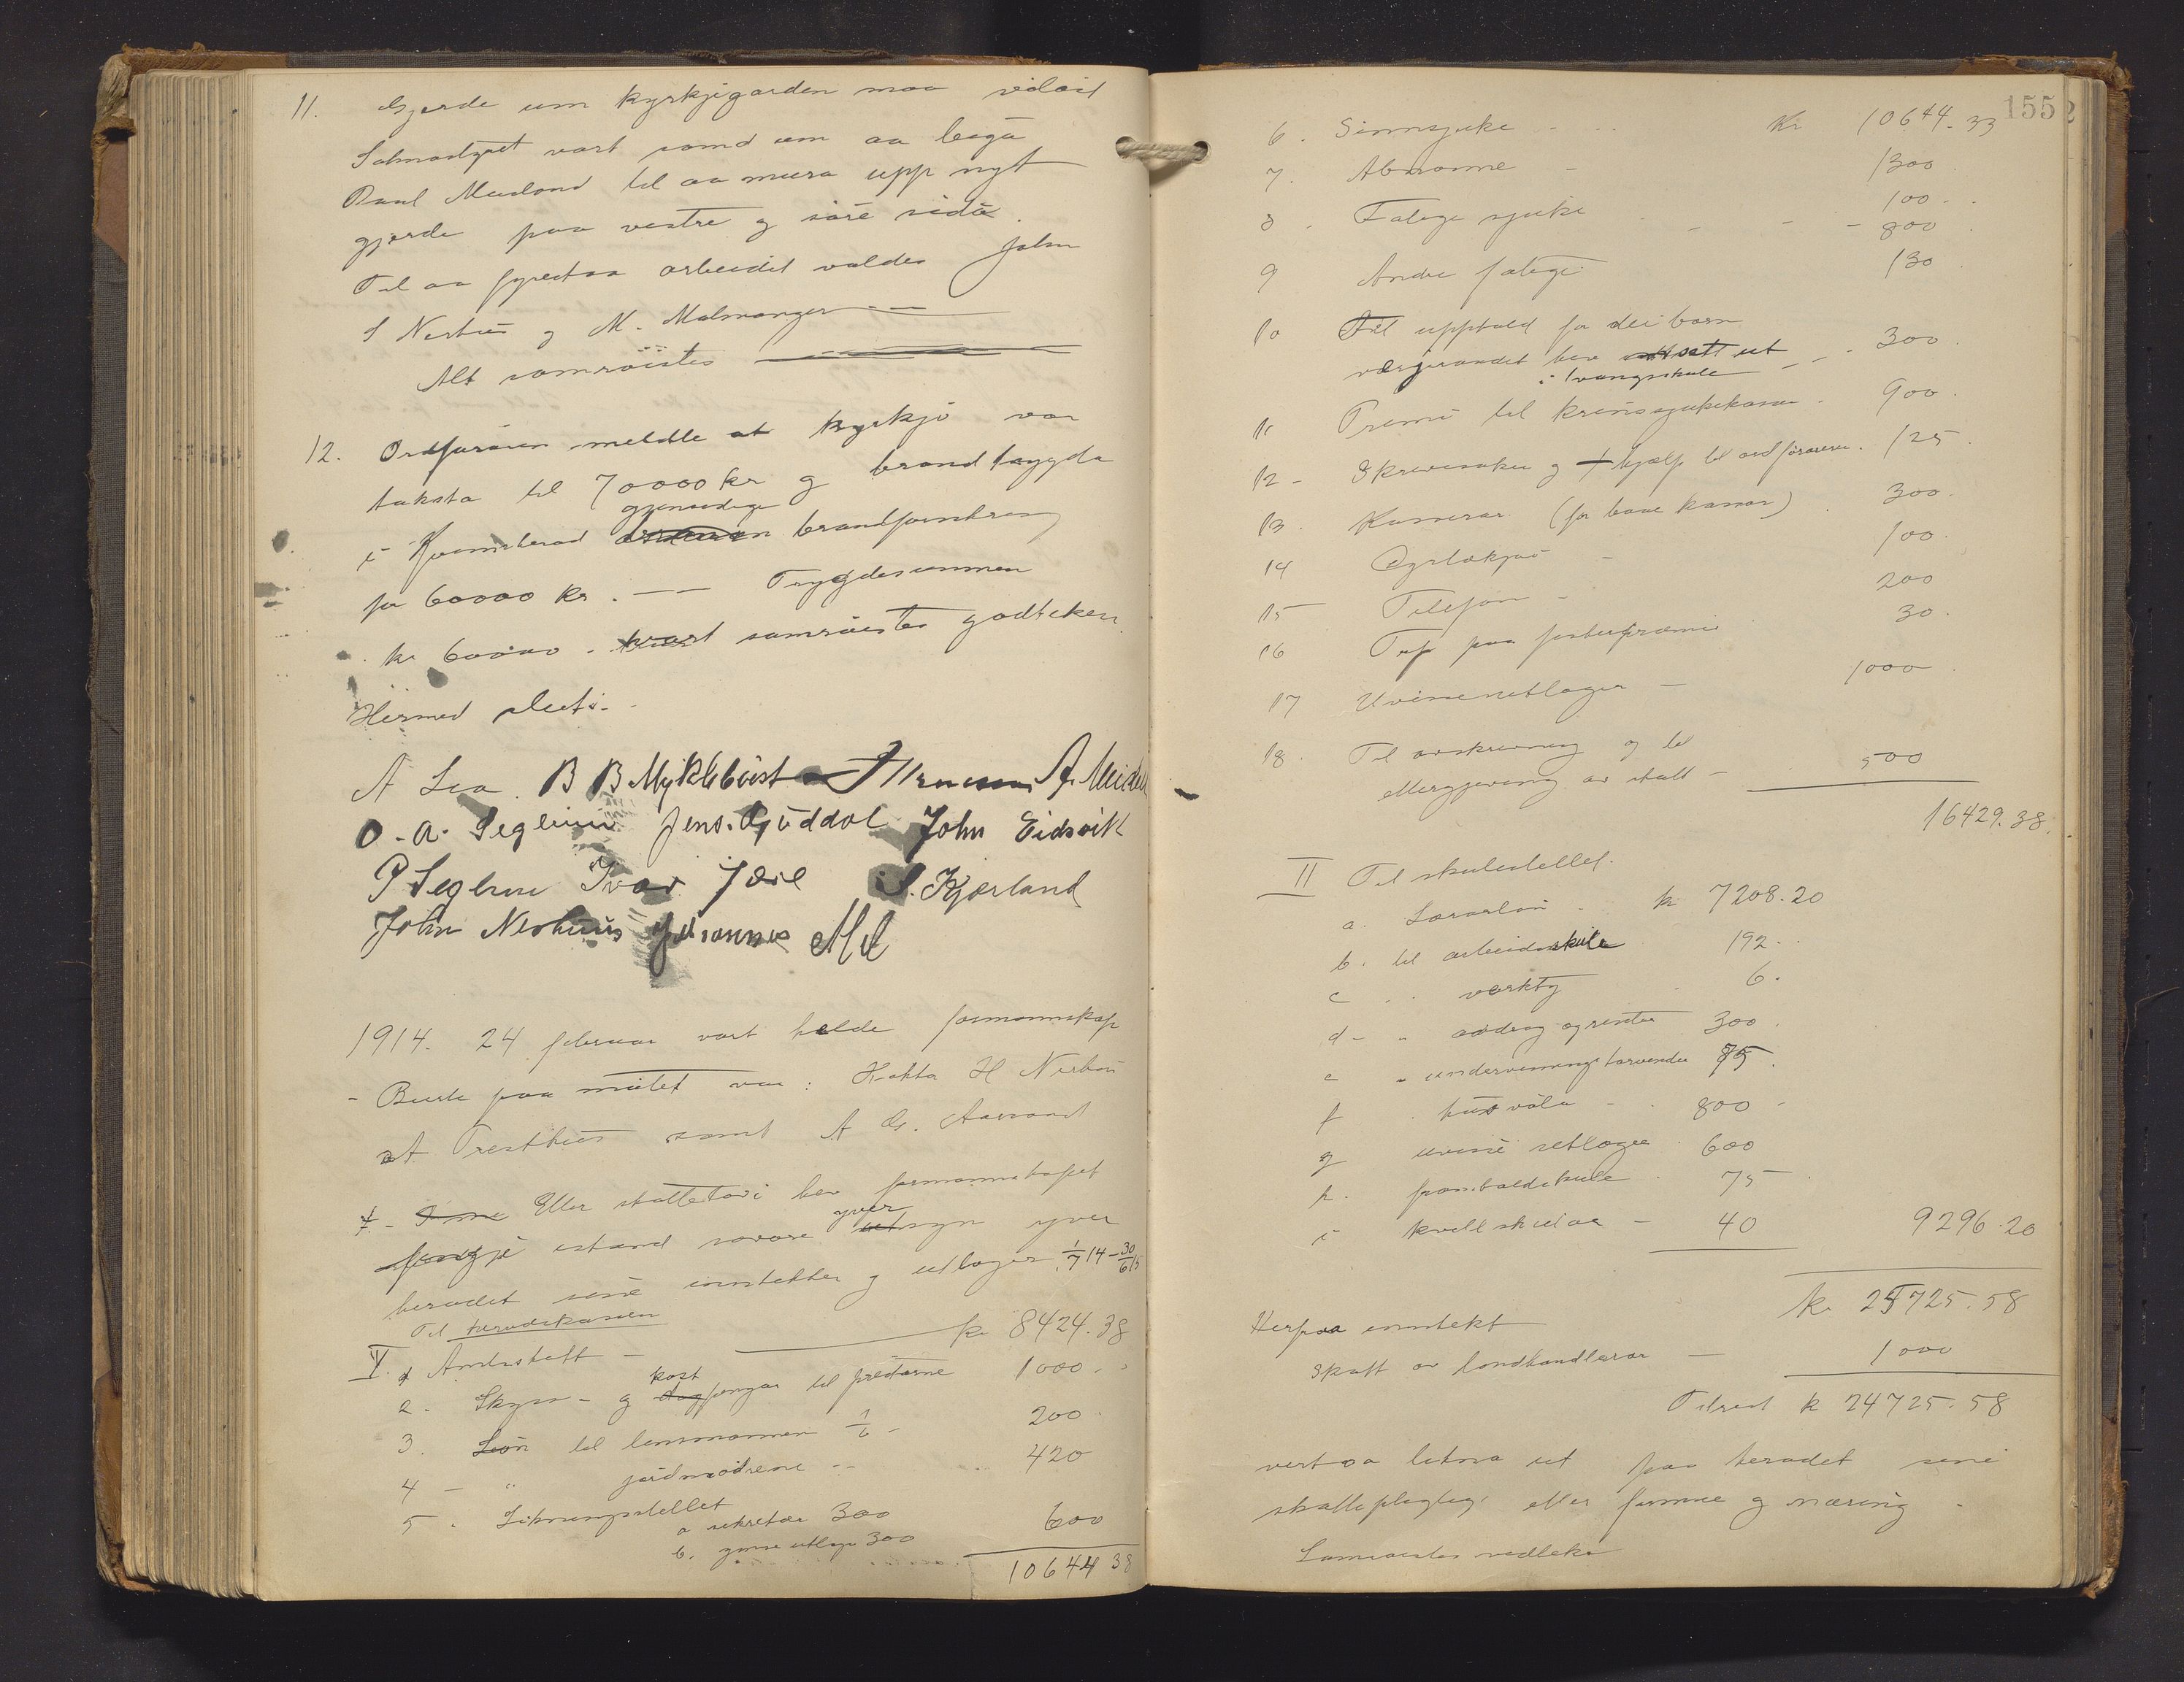 11. Gjerde um kyrkjegarden maa vidast
vart samd um aa leiga
Paul til aa mura upp nyt
gjerde paa vestre og søre sida.
Til aa fyrestaa arbeidet valdes John
S Neshus og M. Malmanger
Alt samrøistes
12. Ordføraren meldte at kyrkjo var
taksta til 70000 kr og brandtrygda
i Kvinnherad gjensidige brandforsikring
for 60000 kr. — Trygdesummen
kr 60000 . vart samrøistes godteken.
Hermed slutt.
A Lea. B B Myklebust A. Meidell
O. A. Seglem Jens. Guddal John Eidsvik
P Seglem Ivar S. Kjærland
John Neshuus Johannes
1914. 24 februar vart halde formannskap
- Burte paa møtet var: H Neshus
A Presthus samt A G. Aarsand
1 - Etter skattelovi hev formannskapet
istand yversyn yver
heradet sine inntekter og utlogor 1/7 14 - 30/6 15
Til heradskassen
I. 1 Amtsskatt - kr 8424.38
2. Skyss- og kostpengar til 1000.
3. Løn til lensmannen 1/6 - 200
4 - " jordmødrene - 420
5. Likningsstellet
a sekretær 300
b. ymse utlogo 300 600
10644 38
155
6. Sinnsjuke - Kr 10644.33
7. Abnorme - 1300
100.
8. Fatige sjuke - 800
9 Andre fatige 130
10 Til upphald for dei born
vergjeraadet hev sett ut
i tvangsskule - 300
11 Premi til krinssjukekassa - 900
12 - Skrivesaker og hjelp til ordføraren. 125
13. Kasserar (for baae kassor) 300.
14 Dyrlækjar - 100.
15 Telefon - 200
16 Tap paa 30.
17 Uvisse utlogor - 1000
18. Til avskriving og til
ettergjeving av skatt - 500
16429.38.
II Til skulestellet.
a. Lærarløn - kr 7208.20
b. til arbeidsskule 192.
c " verkty 6.
d - " avdrag og renter 300.
e " undervisningstarvender 75.
f husvøla - 800 -
g uvisse utlogor 600
h. framhaldskule 75
i kveldskular - 40 9296.20
kr 25725.58
Herpaa inntekt
Skatt av landhandlarar — 1000
Tilrest kr 24725.58
vert aa likna ut paa heradet sine
skattepligtige etter formue og næring.
Samrøistes vedteke